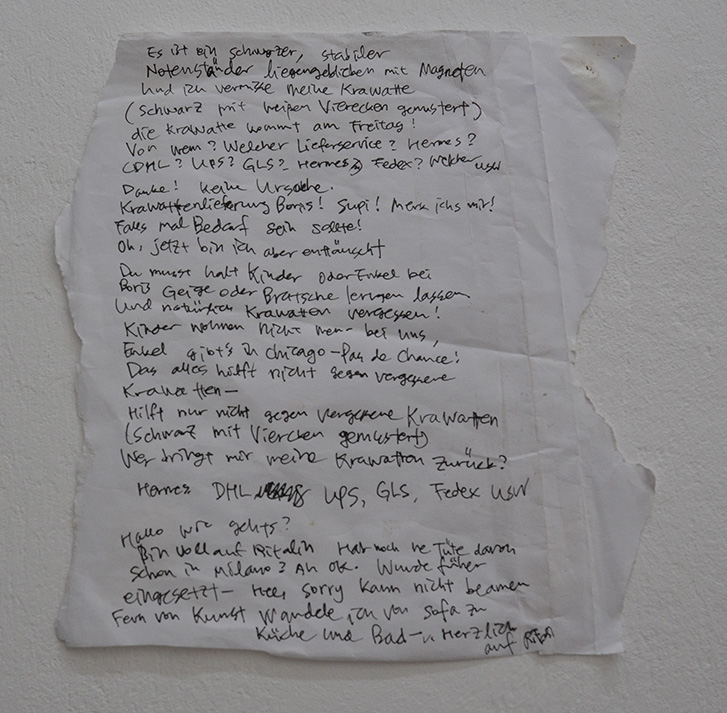 Es ist ein schwarzer, stabiler
Notenständer liegengeblieben mit Magneten
Und ich vermisse meine Krawatte
(schwarz mit weißen Vierecken gemustert)
die Krawatte kommt am Freitag!
Von wem? Welcher Lieferservice? Hermes?
DHL? UPS? GLS? Hermes? Fedex? Welcher usw
Danke! keine Ursache.
Krawattenlieferung Boris! Supi! Merk ichs mir!
Falls mal Bedarf sein sollte!
Oh, jetzt bin ich aber enttäuscht
Du musst halt Kinder oder Enkel bei
Boris Geige oder Bratsche lernen lassen
Und natürlich Krawatten vergessen!
Kinder wohnen nicht mehr bei uns,
Enkel gibt's in Chicago - Pas de Chance!
Das alles hilft nicht gegen vergessene
Krawatten-
Hilft nur nicht gegen vergessene Krawatten
(Schwarz mit Viercken gemustert)
Wer bringt mir meine Krawatten zurück?
Hermes DHL UPS, GLS, Fedex usw
Hallo wie gehts?
Bin voll auf Ritalin Hab noch ne Tüte davon
schon in Milano? Ah ok. Wurde früher
eingesetzt- Hee, sorry kann nicht beamen
Fern von Kunst Wandele ich von Sofa zu
Küche und Bad - Herzlich
auf